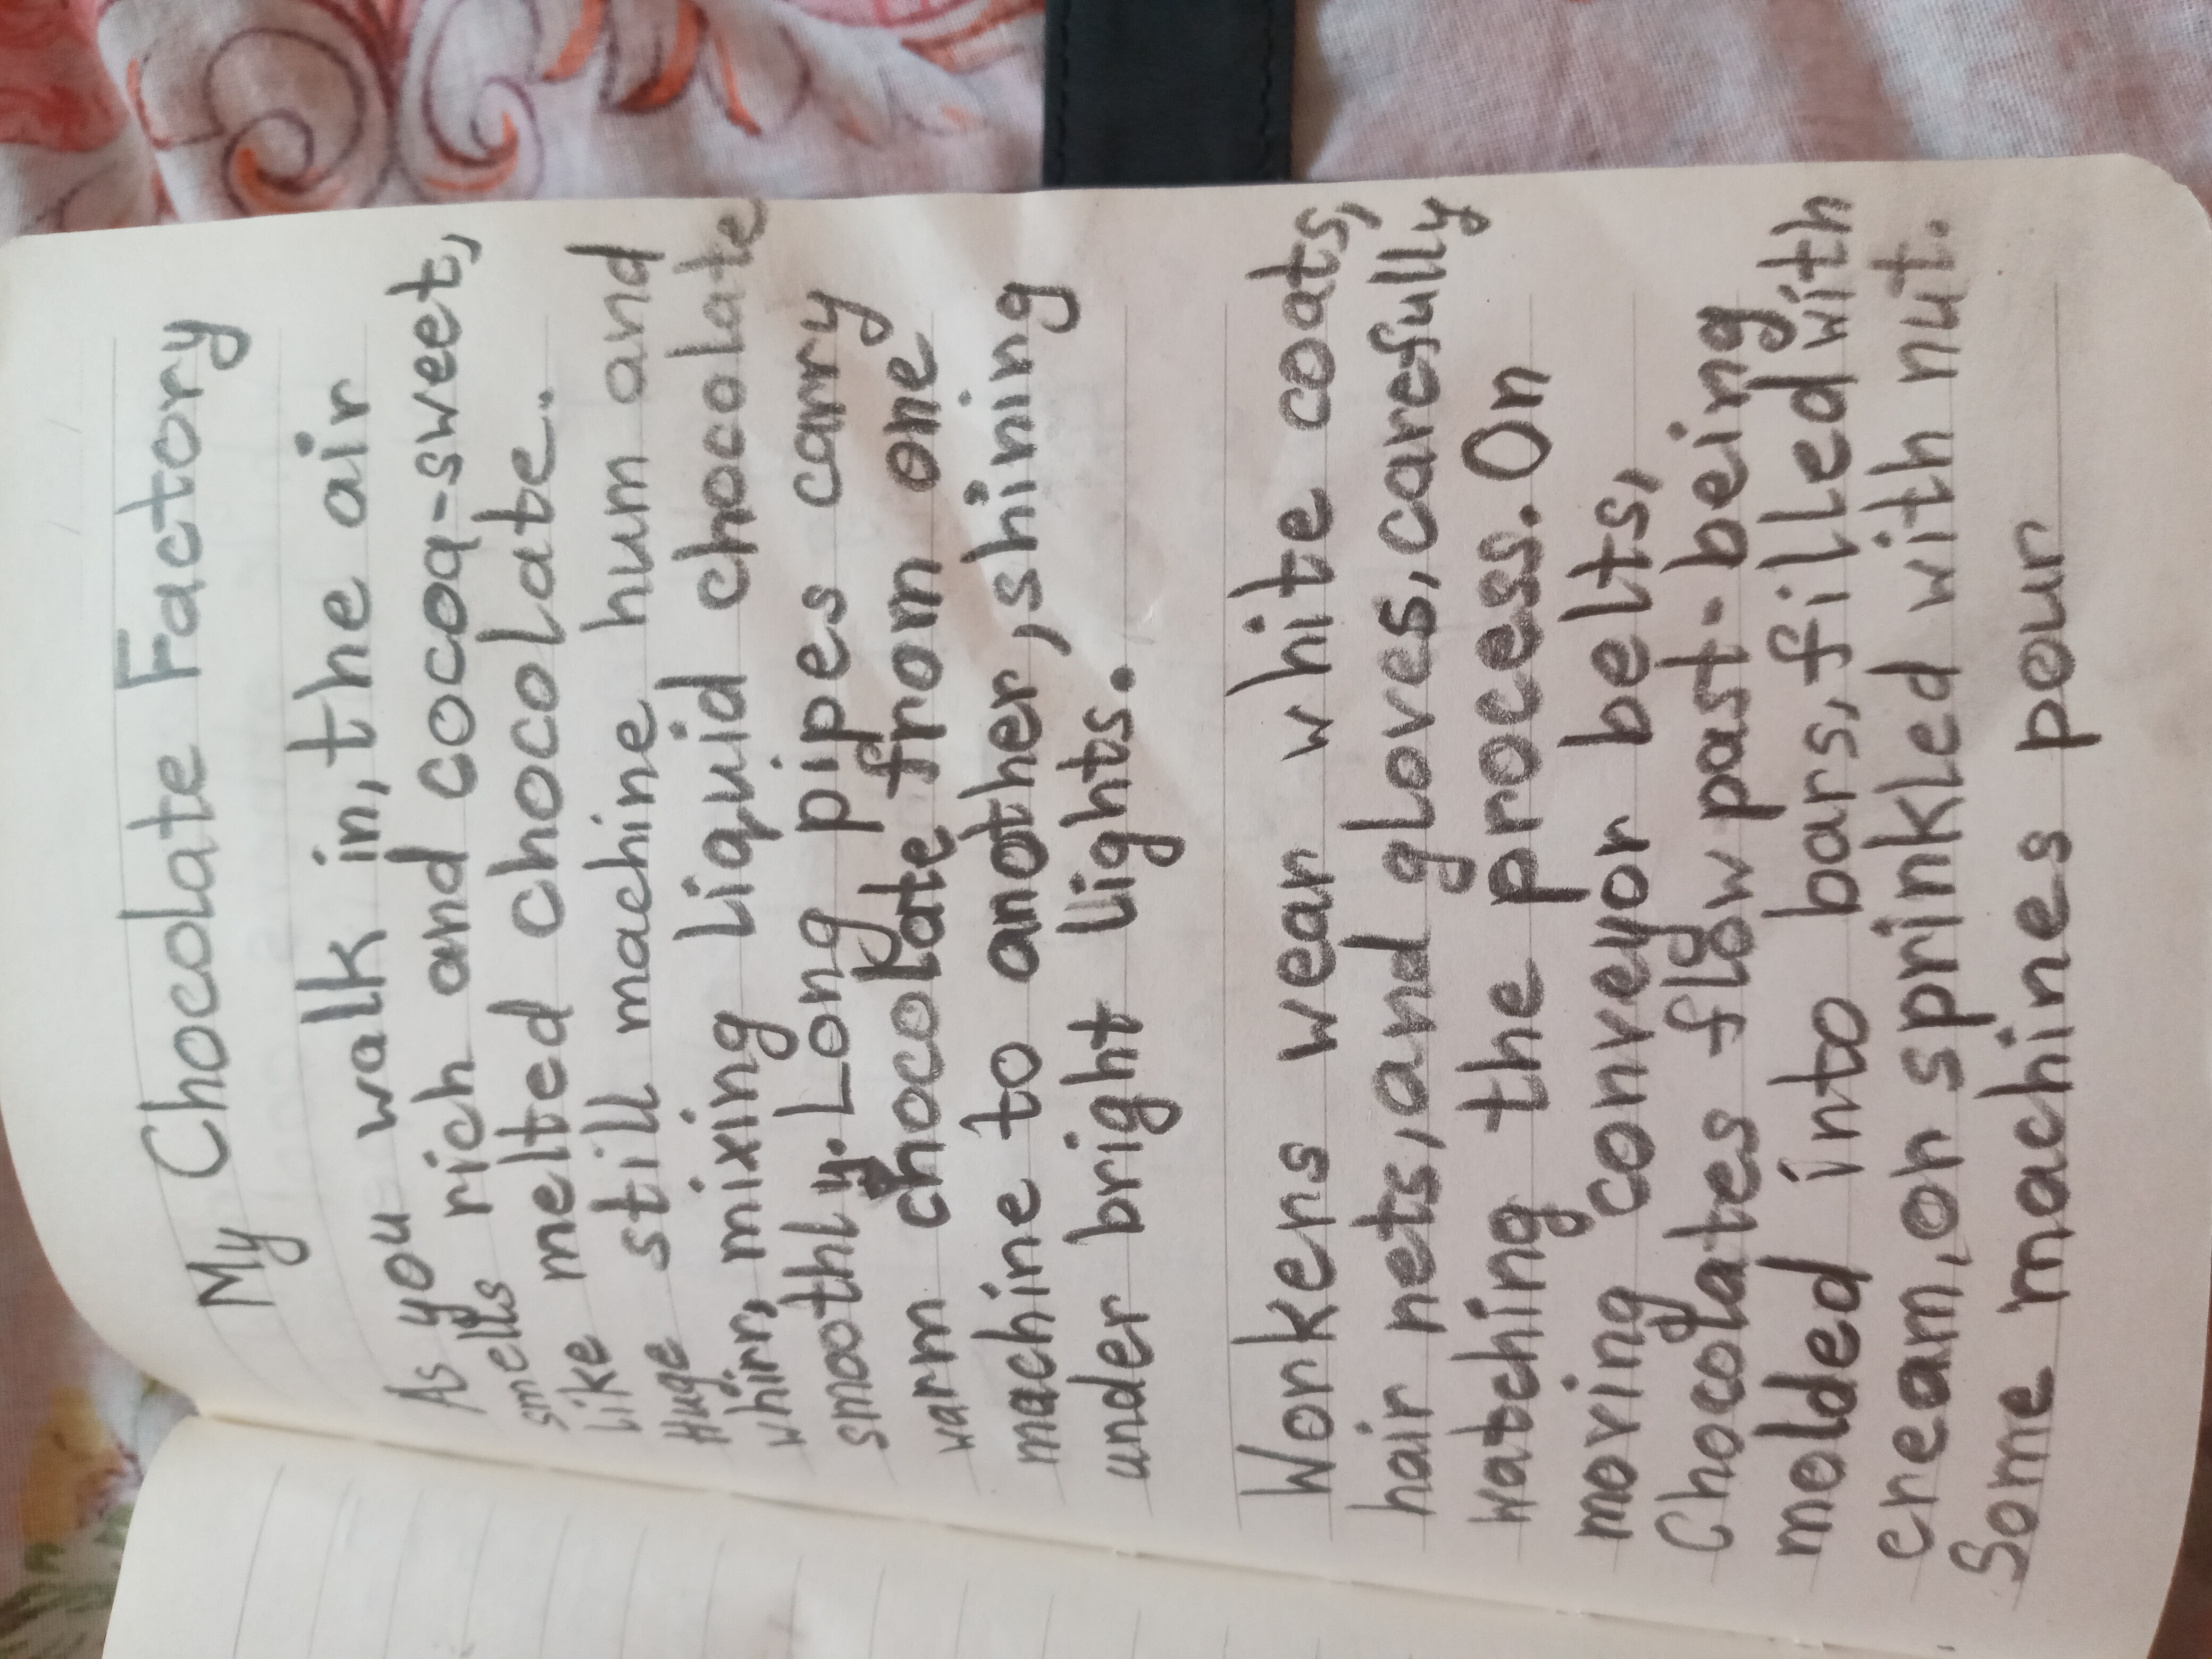 My Chocolate Factory
As you walk in, the air
smells rich and cocoa-sweet,
like melted chocolate.
Huge still machine hum and
whirr, mixing liquid chocolate
smoothly. Long pipes carry
warm chocolate from one
machine to another, shining
under bright lights.
Workers wear white coats,
hair nets, and gloves, carefully
watching the process. On
moving conveyor belts,
Chocolates flow past-being
molded into bars, filled with
cream, or sprinkled with nut.
Some machines pour